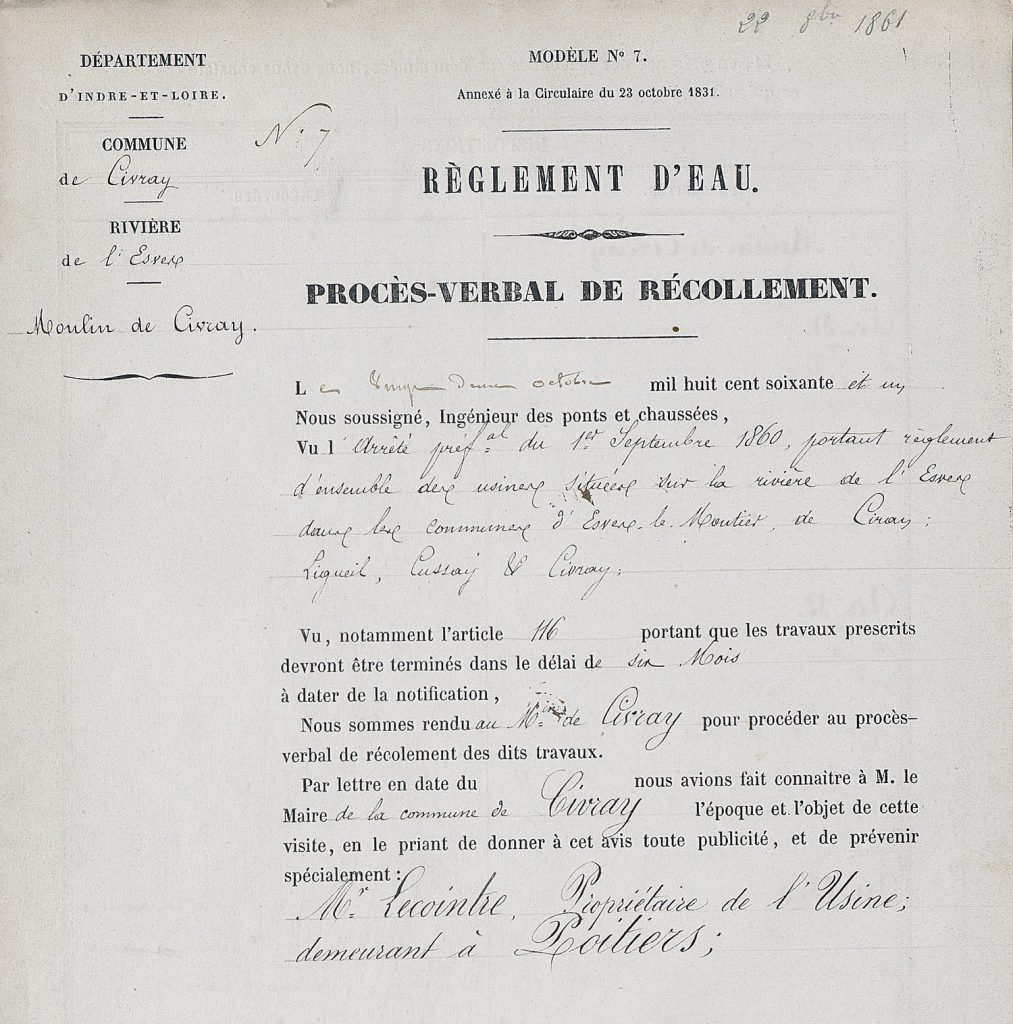 22 8bre 1861
DÉPARTEMENT
D'INDRE-ET-LOIRE.
COMMUNE
de Civray
RIVIÈRE
de l'Esves
Moulin de Civray.
N° 7
MODÈLE N° 7.
Annexé à la Circulaire du 23 octobre 1831.
RÈGLEMENT D'EAU.
PROCÈS-VERBAL DE RÉCOLLEMENT.
Le vingt deux octobre mil huit cent soixante et un
Nous soussigné, Ingénieur des ponts et chaussées,
Vu l'Arrêté préf.al du 1er Septembre 1860, portant règlement
d'ensemble des usines situées sur la rivière de l'Esves
dans les communes d'Esves-le-Moutier, de Ciran,
Ligueil, Cussay & Civray;
Vu, notamment l'article 116 portant que les travaux prescrits
devront être terminés dans le délai de six Mois
à dater de la notification,
Nous sommes rendu au M.in de Civray pour procéder au procès-
verbal de récolement des dits travaux.
Par lettre en date du nous avions fait connaitre à M. le
Maire de la commune de Civray l'époque et l'objet de cette
visite, en le priant de donner à cet avis toute publicité, et de prévenir
spécialement :
Mr Lecointre, Propriétaire de l'Usine;
demeurant à Poitiers;